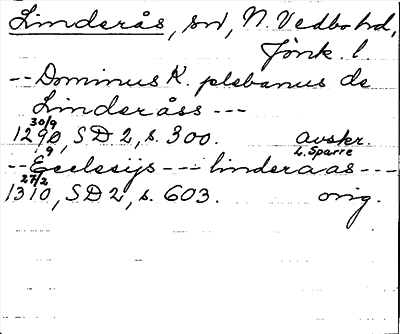 Linderås, sn, N. Vedbo hd,
Jönk. l.
-- Dominus K. plebanus de
Linderåss ---
30/9
1290, SD 2, s. 300. avskr.
9 L. Sparre
-- Ecclesijs --- linderaas ---
27/2
1310, SD 2, s. 603. orig.